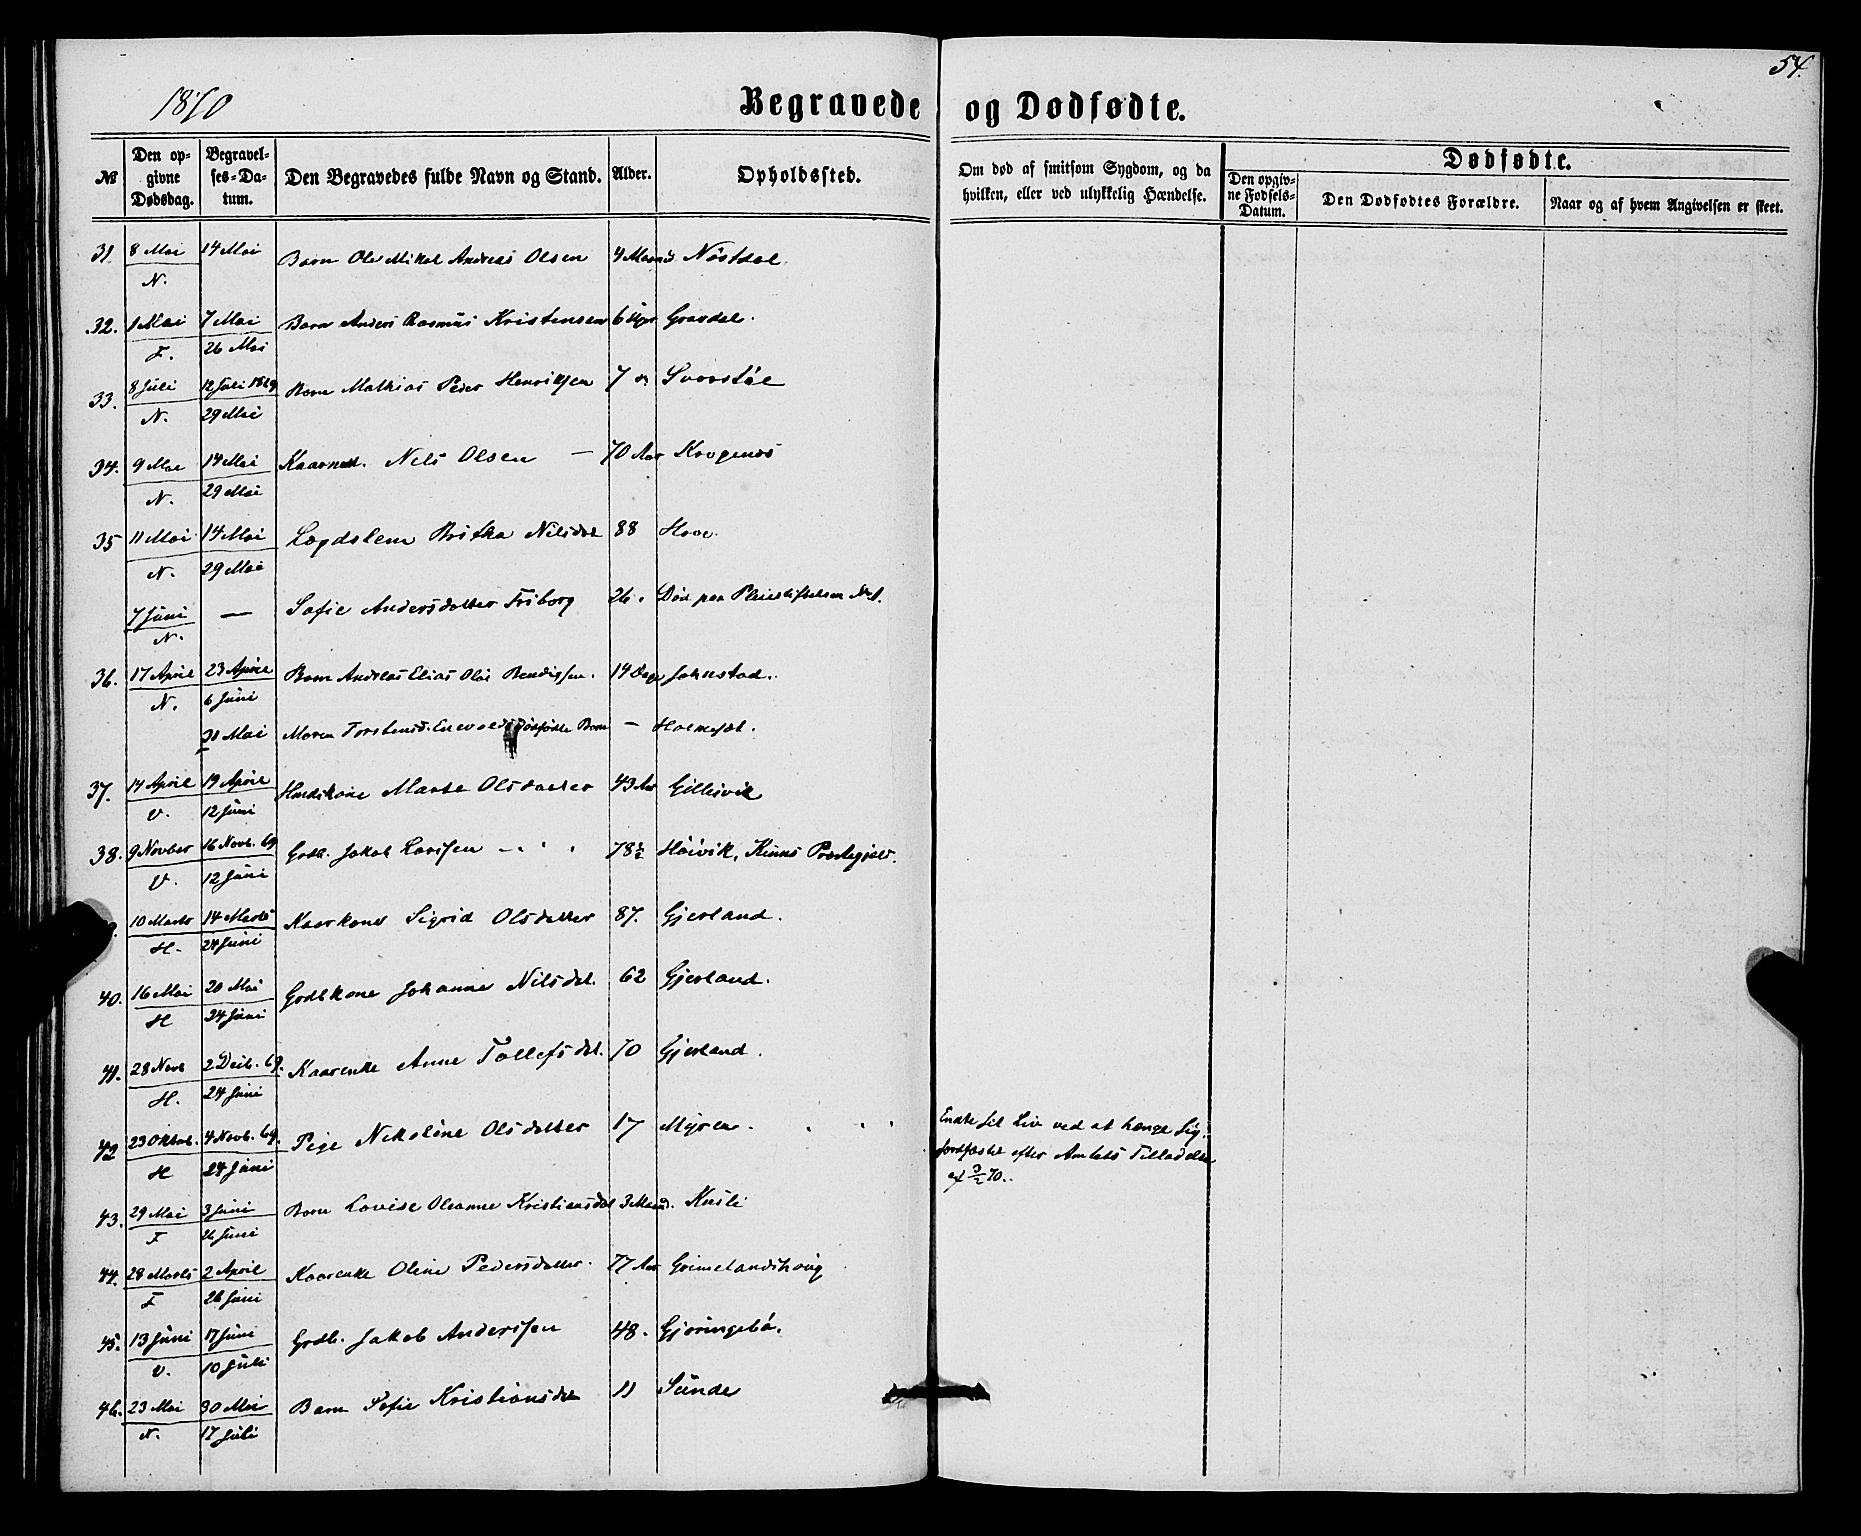 54.
1870
Begravede og Dødfødte.
№ Den opgivne Dødsdag. Begravelses-Datum. Den Begravedes fulde Navn og Stand. Alder. Opholdssted. Om død af smitsom Sygdom, og da hvilken, eller ved ulykkelig Hændelse. Dødfødte.
Den opgivne Fødsels-Datum. Den Dødfødtes Forældre. Naar og af hvem Angivelsen er skeet.
31 8 Mai 14 Mai Barn Ole Mikal Andreas Olsen 4 Maaned. Nøstdal
N.
32. 1 Mai 7 Mai Barn Anders Rasmus Kristensen 6 Uger Gravdal.
F. 26 Mai
33. 8 Juli 12 Juli 1869 Barn Mathias Peder Henriksen 7 Svorstøl
N. 29 Mai
34. 9 Mai 14 Mai Kaarmd. Nils Olsen — 70 Aar Krogenæs
N. 29 Mai
35 11 Mai 14 Mai Lægdslem Britha Nilsdat 88 Hove.
N. 29 Mai
7 Juni — Sofie Andersdatter Friborg 26. Død paa Pleiestiftelsen № 1.
N.
36. 17 April 23 April Barn Andreas Elias Olai Bendigsen. 14 Dage Johnstad.
N. 6 Juni
31 Mai Maren Torstensd. Dødfødte Barn —
37. 14 April 19 April Huuskone Marte Olsdatter 43 Aar Gillesvik
V. 12 Juni
38. 9 Novber 16 Novb. 69 Grdb. Jakob Larssen 78½ Høivik, Kinns Præstegjeld.
V. 12 Juni
10 Marts 14 Marts Kaarkone Sigrid Olsdatter 87. Gjerland.
H. 24 Juni
40. 16 Mai 20 Mai Grdbkone Johanne Nilsdat. 62 Gjerland.
H 24 Juni
41. 28 Novb 2 Decb. 69. Kaarenke Anne Tollefsdat. 70 Gjerland.
H. 24 Juni
42 23 Oktob. 4 Novb. 69. Pige Nikoline Olsdatter 17 Myren. Endte sit Liv ved at hænge sig.
H 24 Juni Jordfæstet efter Amtets Tilladelse
af 3/2 70.
43. 29 Mai 3 Juni Barn Lovise Oleanne Kristiansdat 3 Maaned. Kusli
F 26 Juni
44. 28 Marts 2 April Kaarenke Oline Pedersdatter. 77 Aar Grimelandshoug
F 26 Juni
45. 13 Juni 17 Juni Grdb. Jakob Anderssen 48. Gjøringebø.
V. 10 Juli
46. 23 Mai 30 Mai Barn Sofie Kristiansdat 11 Sunde
N. 17 Juli